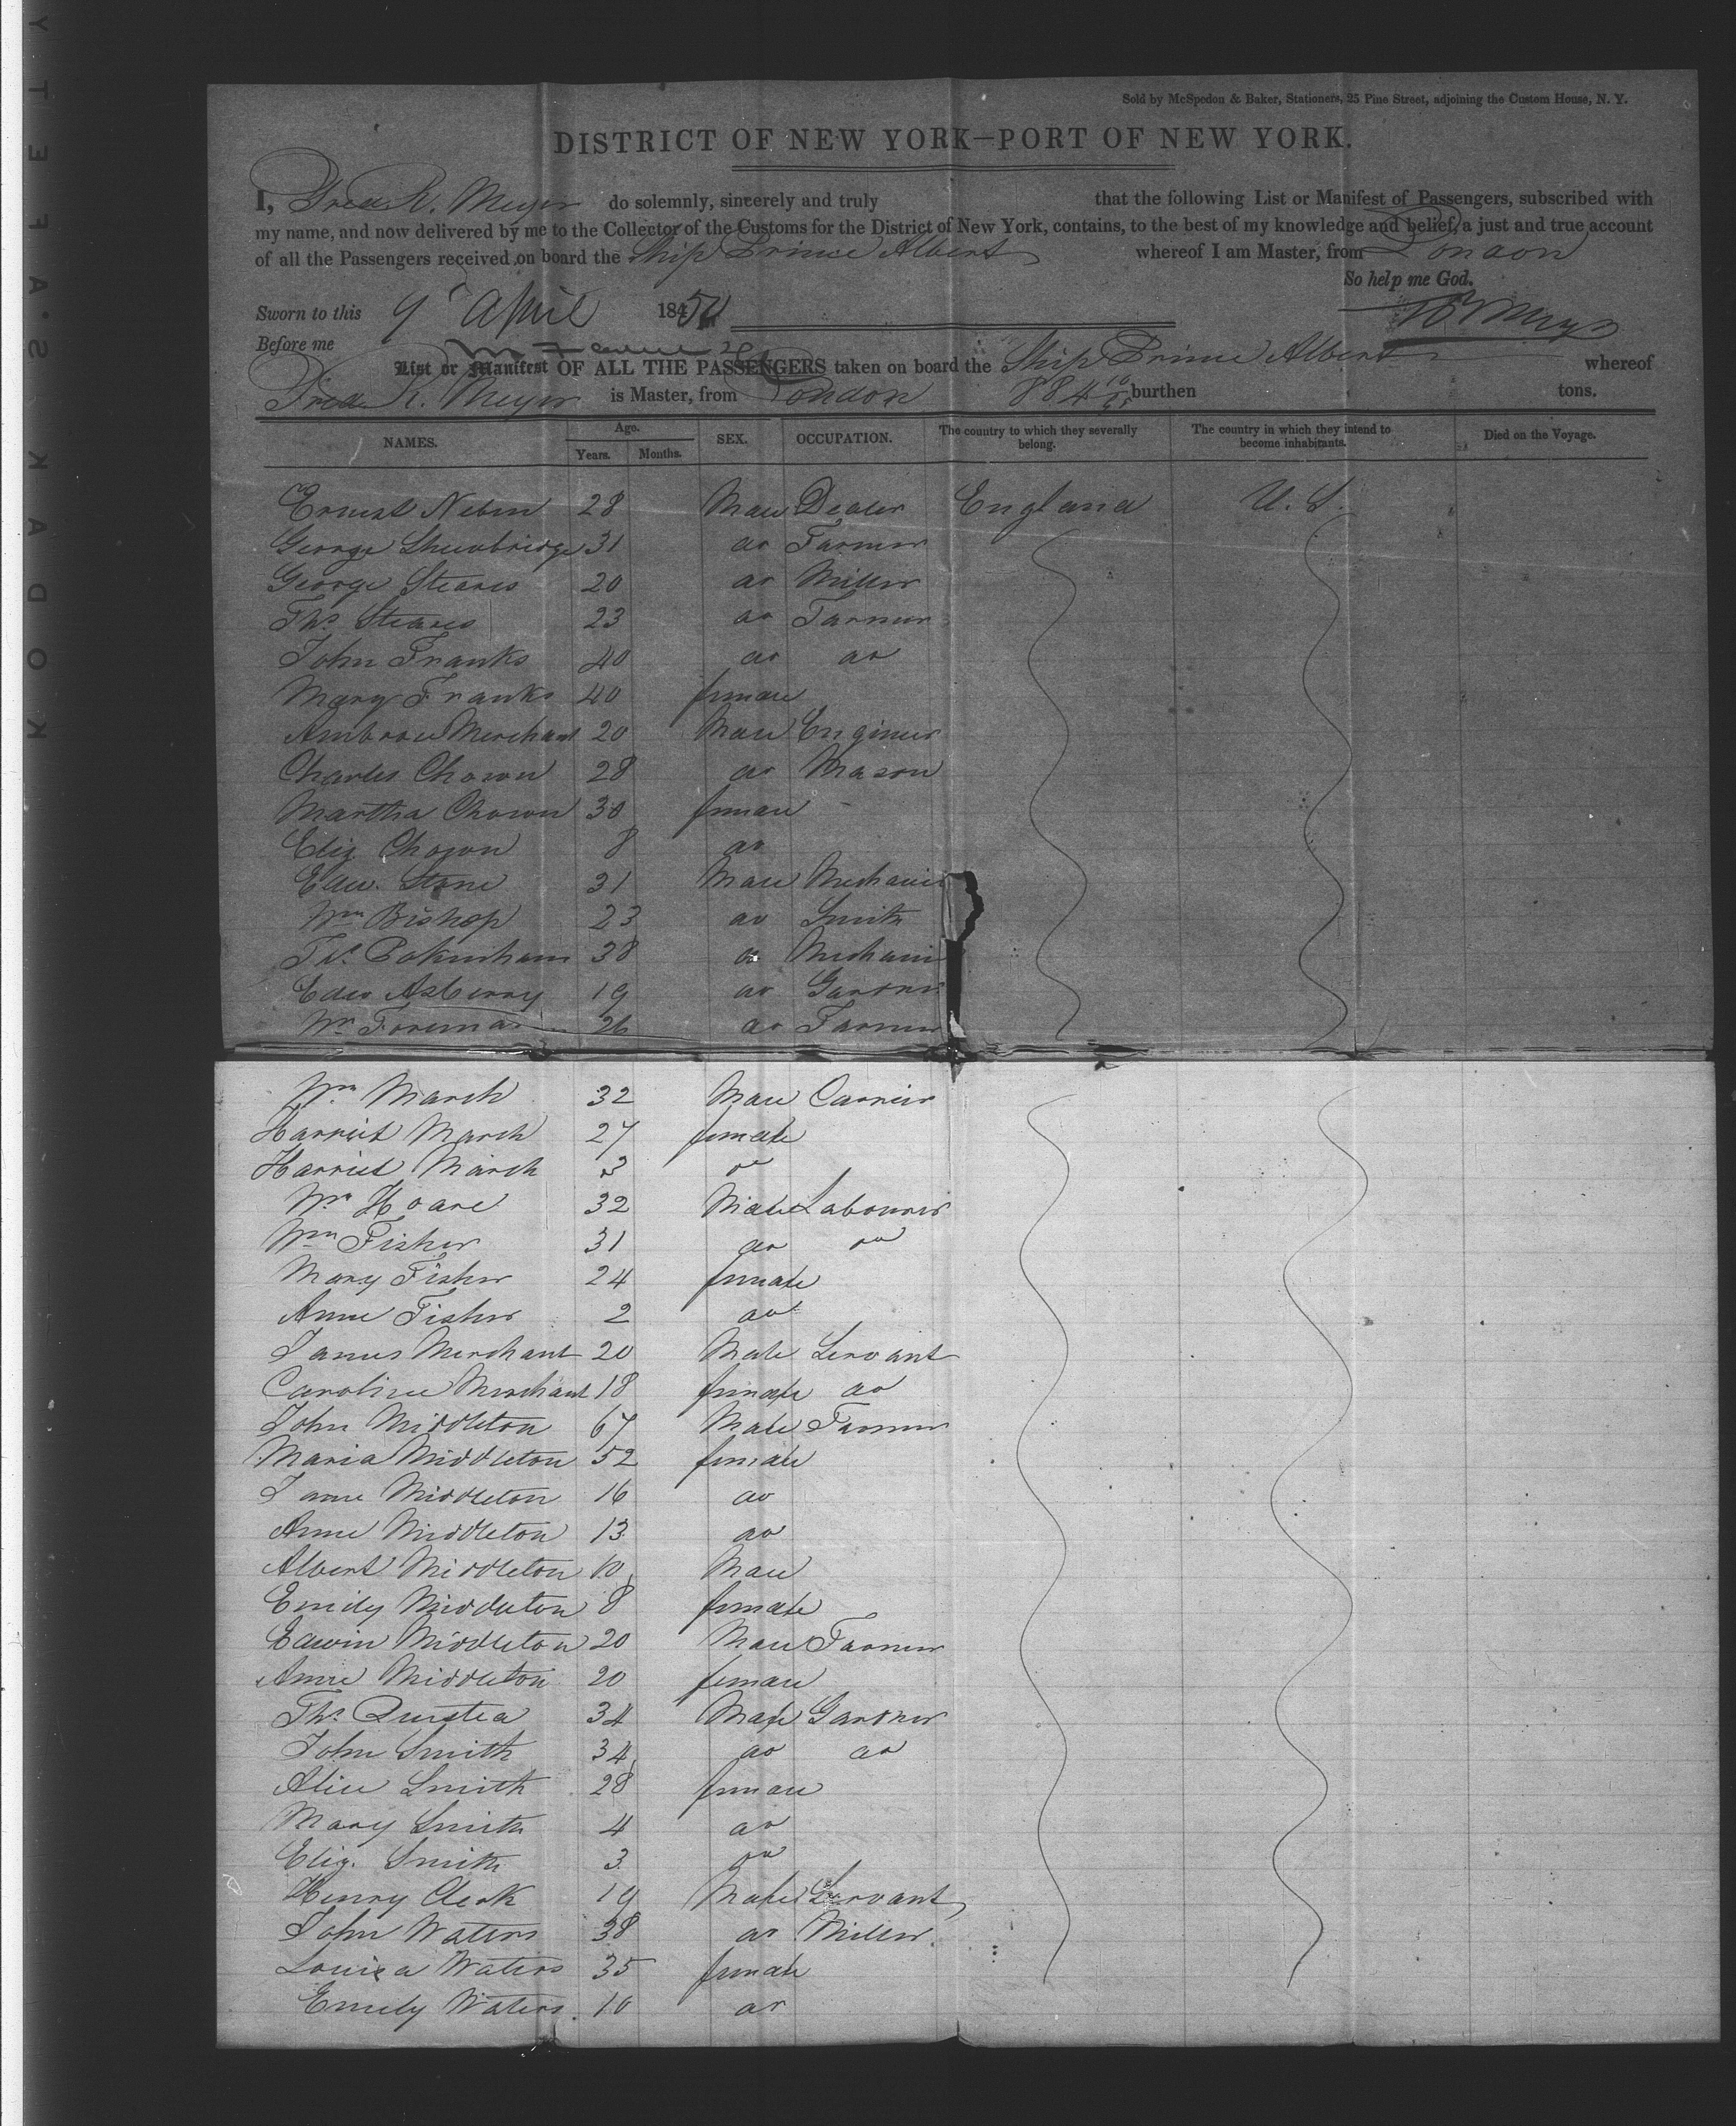 SAFETY
KODAK
Sold by McSpedon & Baker, Stationers, 25 Pine Street, adjoining the Custom House, N. Y.
DISTRICT OF NEW YORK—PORT OF NEW YORK.
I, Fred R. Meyer do solemnly, sincerely and truly that the following List or Manifest of Passengers, subscribed with
my name, and now delivered by me to the Collector of the Customs for the District of New York, contains, to the best of my knowledge and belief, a just and true account
of all the Passengers received on board the Ship Prince Albert whereof I am Master, from London
So help me God.
Sworn to this 9 April 1850
Before me
List or Manifest OF ALL THE PASSENGERS taken on board the Ship Prince Albert whereof
Fred R. Meyer is Master, from London 884 burthen tons.
NAMES. Age. Years. Months. SEX. OCCUPATION. The country to which they severally belong. The country in which they intend to become inhabitants. Died on the Voyage.
Ernest 28 Male Dealer England U.S.
George 31 do Farmer
George Steares 20 do Miller
Ths Steares 23 do Farmer
John Franks 40 do do
Mary Franks 40 female
Ambrose Merchant 20 Male Engineer
Charles Chown 28 do Mason
Martha Chown 30 female
Eliz Chown 8 do
Edw. Stone 31 Male Mechanic
Wm Bishop 23 do Smith
Ths 38 do Mechanic
Edw Asberry 19 do Gardner
Wm Foreman 26 do Farmer
Wm March 32 Male Carrier
Harriet March 27 female
Harriet March 3 do
Wm Hoare 32 Male Labourer
Wm Fisher 31 do do
Mary Fisher 24 female
Anne Fisher 2 do
James Merchant 20 Male Servant
Caroline Merchant 18 female do
John Middleton 67 Male Farmer
Maria Middleton 52 female
Jane Middleton 16 do
Anne Middleton 13 do
Albert Middleton 10 Male
Emily Middleton 8 female
Edwin Middleton 20 Male Farmer
Anne Middleton 20 female
Ths 34 Male Gardner
John Smith 34 do do
Alice Smith 28 female
Mary Smith 4 do
Eliz. Smith 3 do
Henry Clerk 19 Male Servant
John Waters 38 do Miller
Louisa Waters 35 female
Emily Waters 10 do